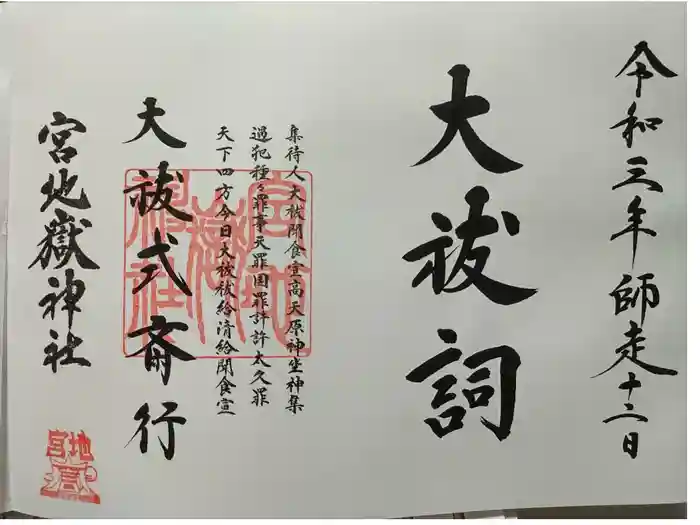 令和三年師走十二日
大祓詞
集待人大祓聞食宣高天原神坐神集
過犯種々罪事天罪国罪許許太久罪
天下四方今日大祓祓給清給聞食宣
大祓式斎行
宮地嶽神社